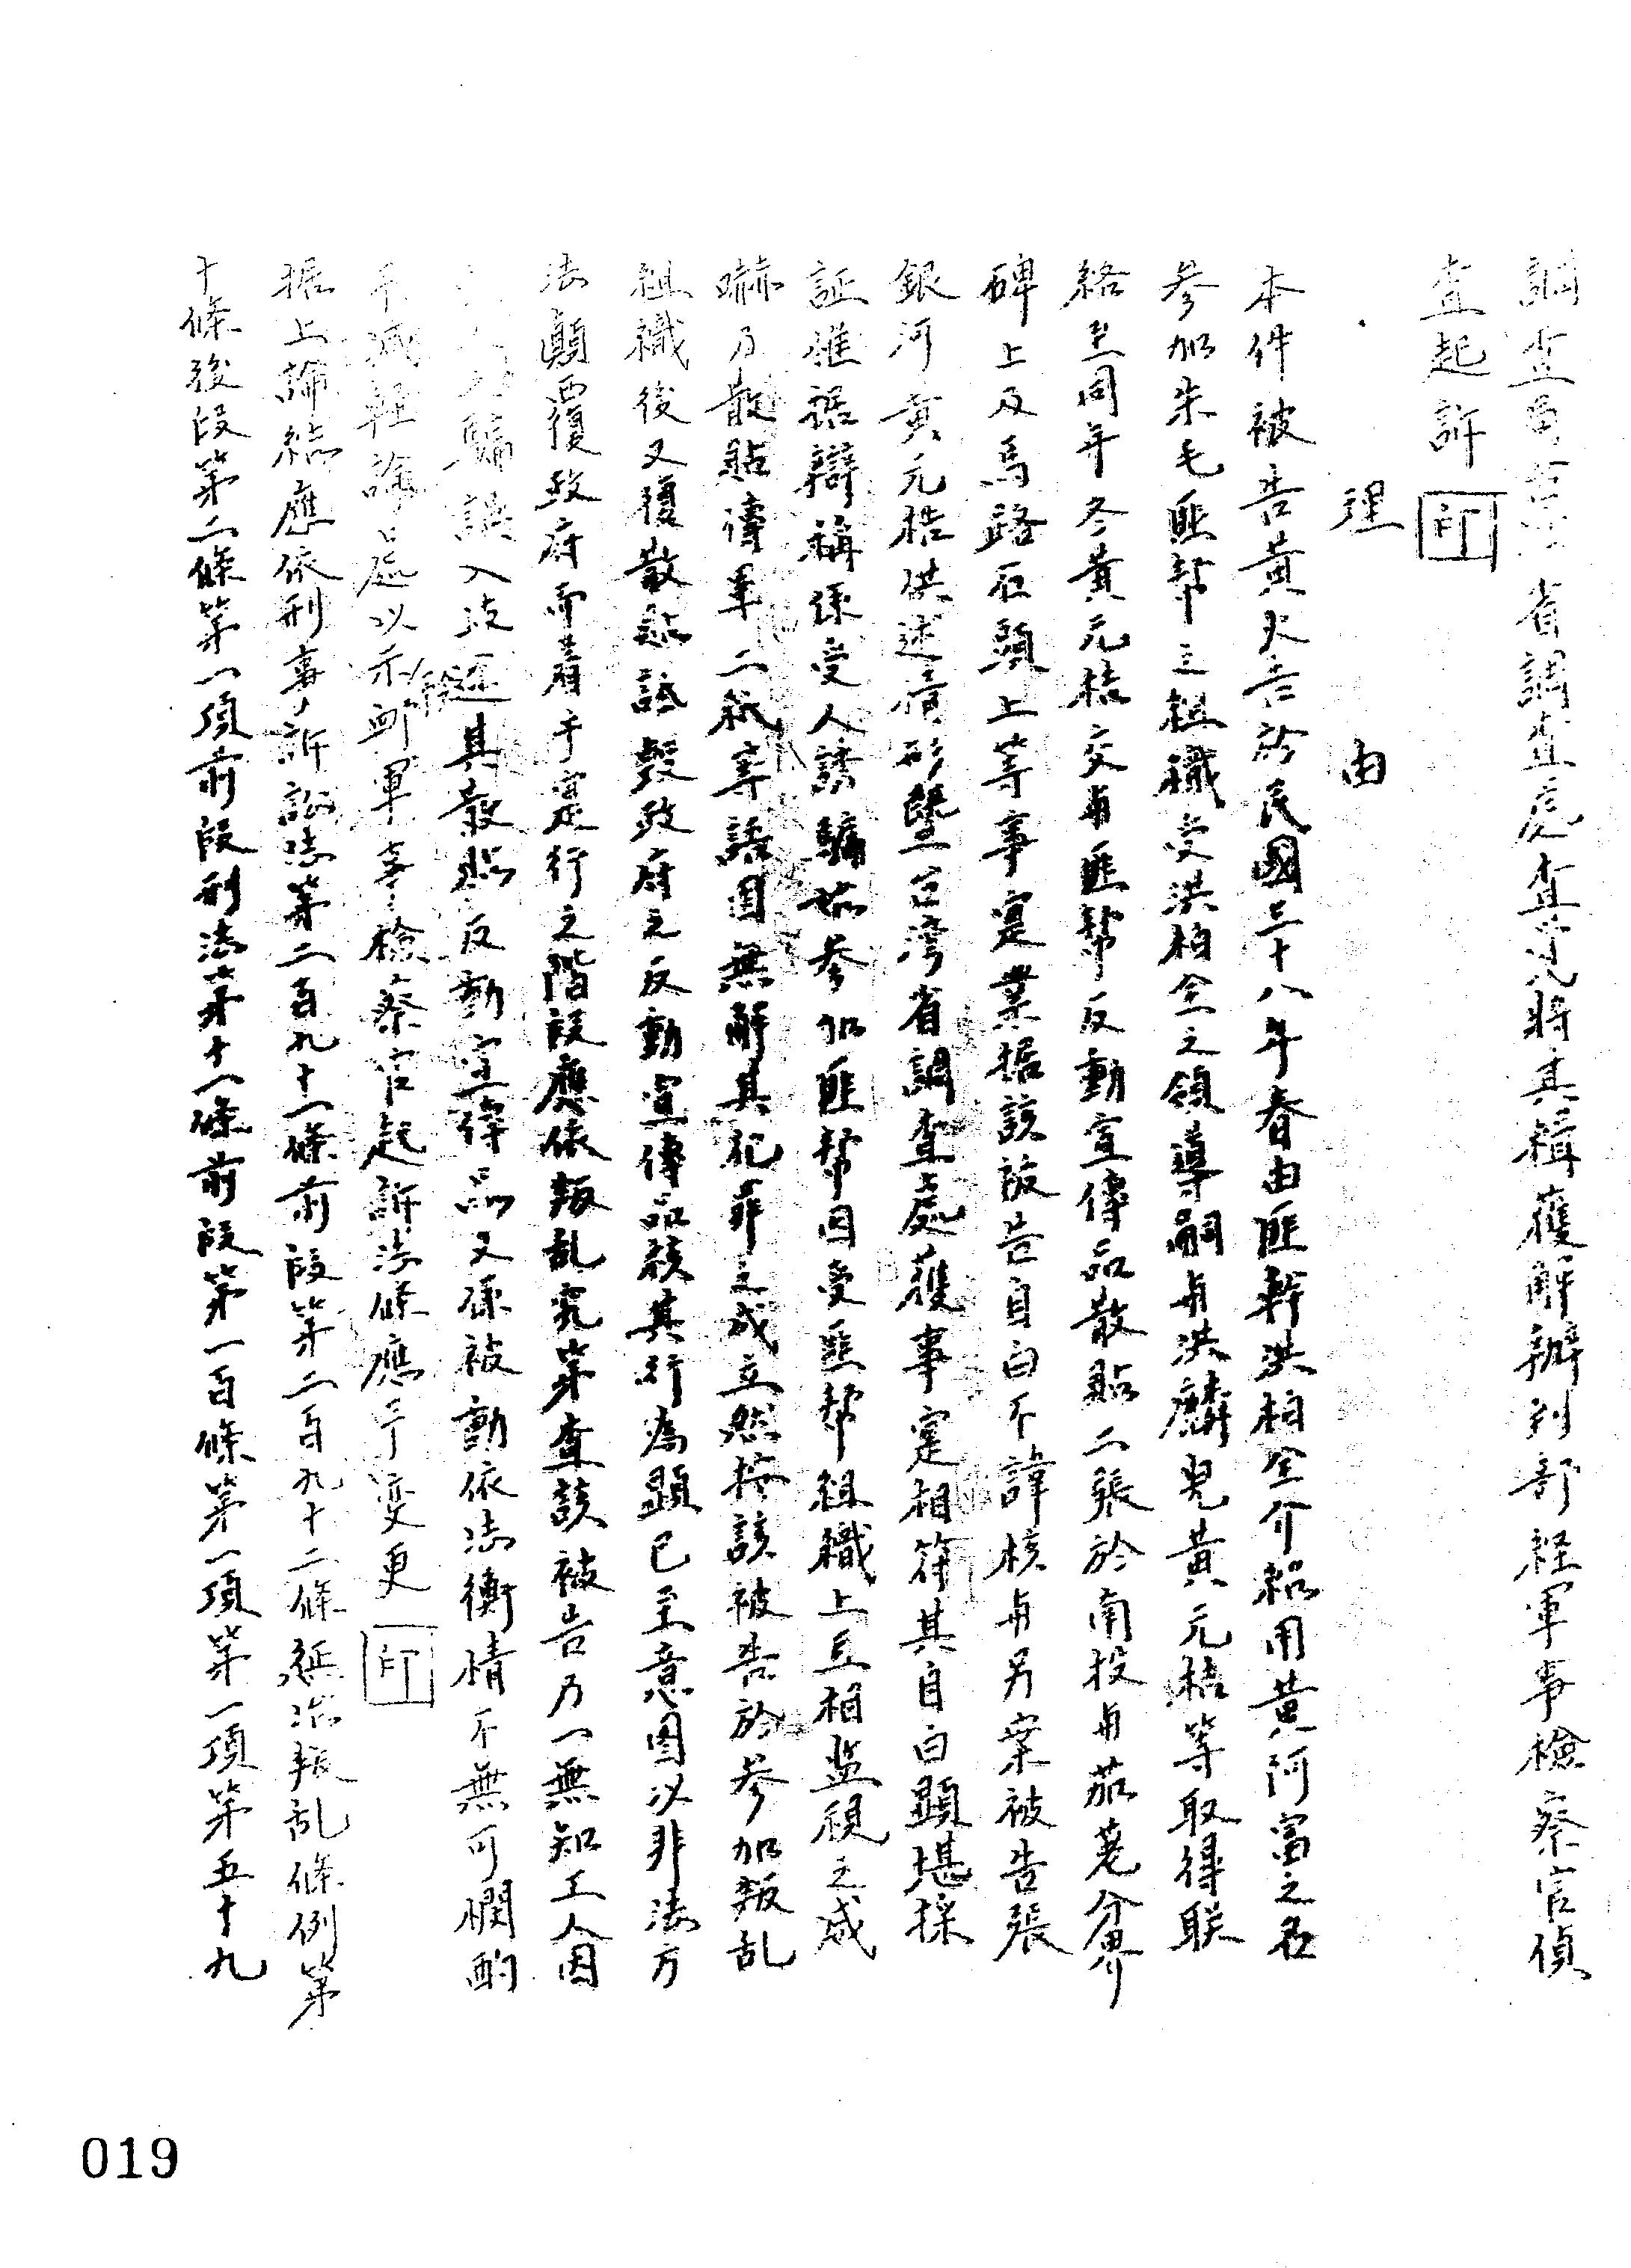 調查南台灣省調查處查悉將其緝獲解辦到部経軍事檢察官偵
查起訴 印
理由
本件被告黃火吉於民國三十八年春由匪幹洪柏全介紹用黃阿富之名
参加朱毛匪幫之組織受洪柏全之領導嗣与洪麟兒黃元桔等取得联
絡至同年冬黃元桔交与匪幫反動宣傳品散貼二張於南投与茄荖分界
碑上及馬路石頭上等事寔業据該被告自白不諱核与另案被告張
銀河黃元桔供述情形暨台灣省調查處獲事寔相符其自白顯堪採
証惟据辯稱係受人誘騙始参加匪幫因受匪幫組織上互相監視之威
嚇乃散貼傳單二紙等語固無解其犯罪之成立然按該被告於参加叛乱
組織後又復散貼詆毀政府之反動宣傳品核其行為顯已至意圖以非法方
法顛覆政府而着手寔行之階段應依叛乱究第查該被告乃一無知工人因
人騙誤入歧途其散貼反動宣傳品又係被動依法衡情不無可憫酌
予减輕論處以示卹軍事檢察官起訴法條應予变更 印
据上論結應依刑事訴訟法第二百九十一條前段第二百九十二條懲治叛乱條例第
十條後段第二條第一項前段刑法第十一條前段第一百條第一項第一項第五十九
019